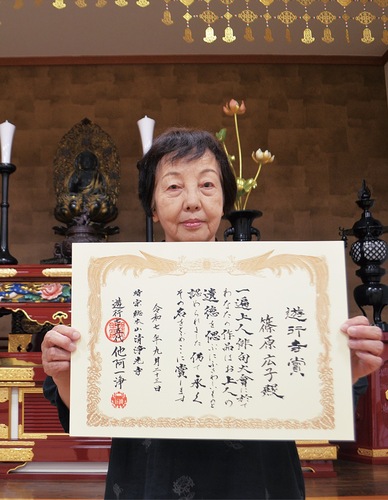 遊行寺賞
篠原広子殿
一遍上人俳句大會に於て
あなたの作品はお上人の
遺徳を偲ぶにふさわしいものと
認められました 仍て 永く
その名をたたえここに賞します
令和七年九月二十三日
時宗総本山清浄光寺
遊行七十五代 他阿一浄